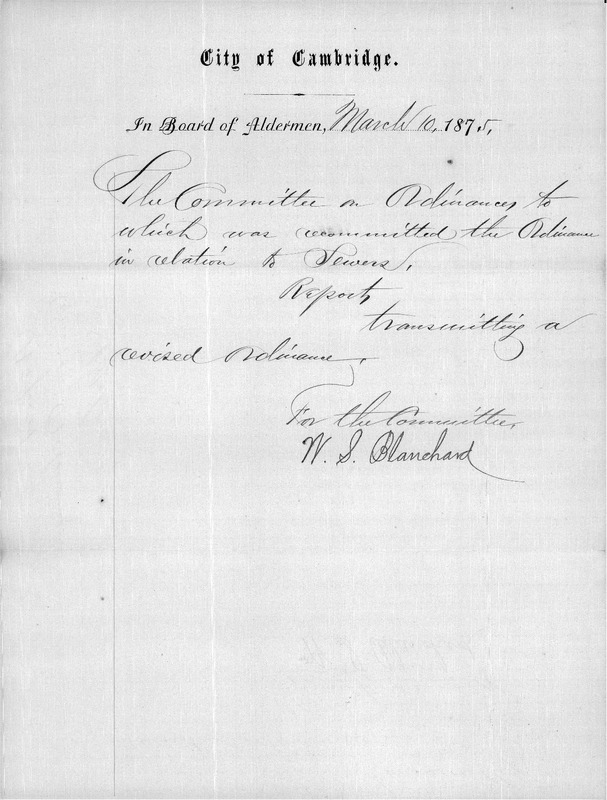 City of Cambridge.
In Board of Aldermen, March 10, 1875,
The Committee on Ordinances to
which was recommitted the Ordinance
in relation to Sewers,
Report,
transmitting a
revised Ordinance,
For the Committee,
W. S. Blanchard